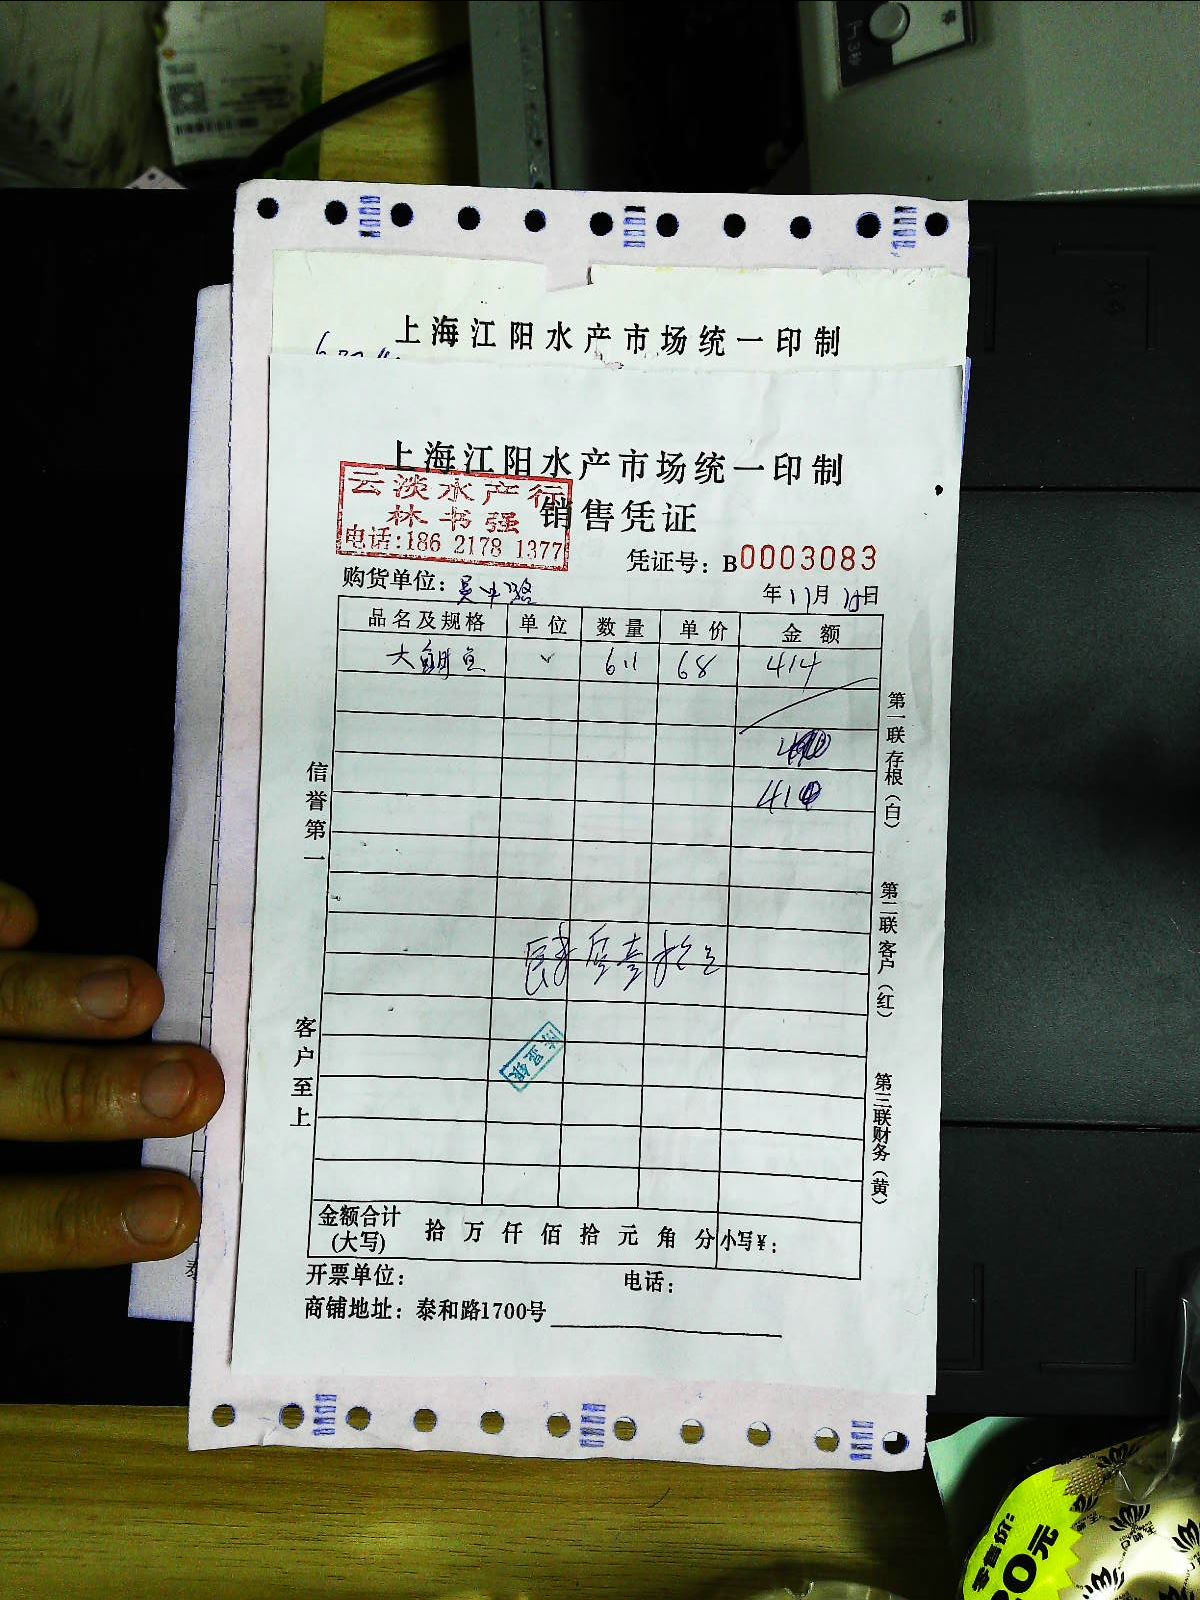 上海江阳水产市场统一印制
上海江阳水产市场统一印制
云淡水产行
林书强
电话:186 2178 1377
销售凭证
凭证号: B0003083
购货单位: 吴中路
年11月 日
品名及规格 单位 数量 单价 金额
大鲷鱼 611 68 414
410
肆佰壹拾元
信誉第一
客户至上
第一联存根(白)
第二联客户(红)
第三联财务(黄)
金额合计(大写) 拾万仟佰拾元角分 小写¥:
开票单位: 电话:
商铺地址: 泰和路1700号
泰
零售价:
20元